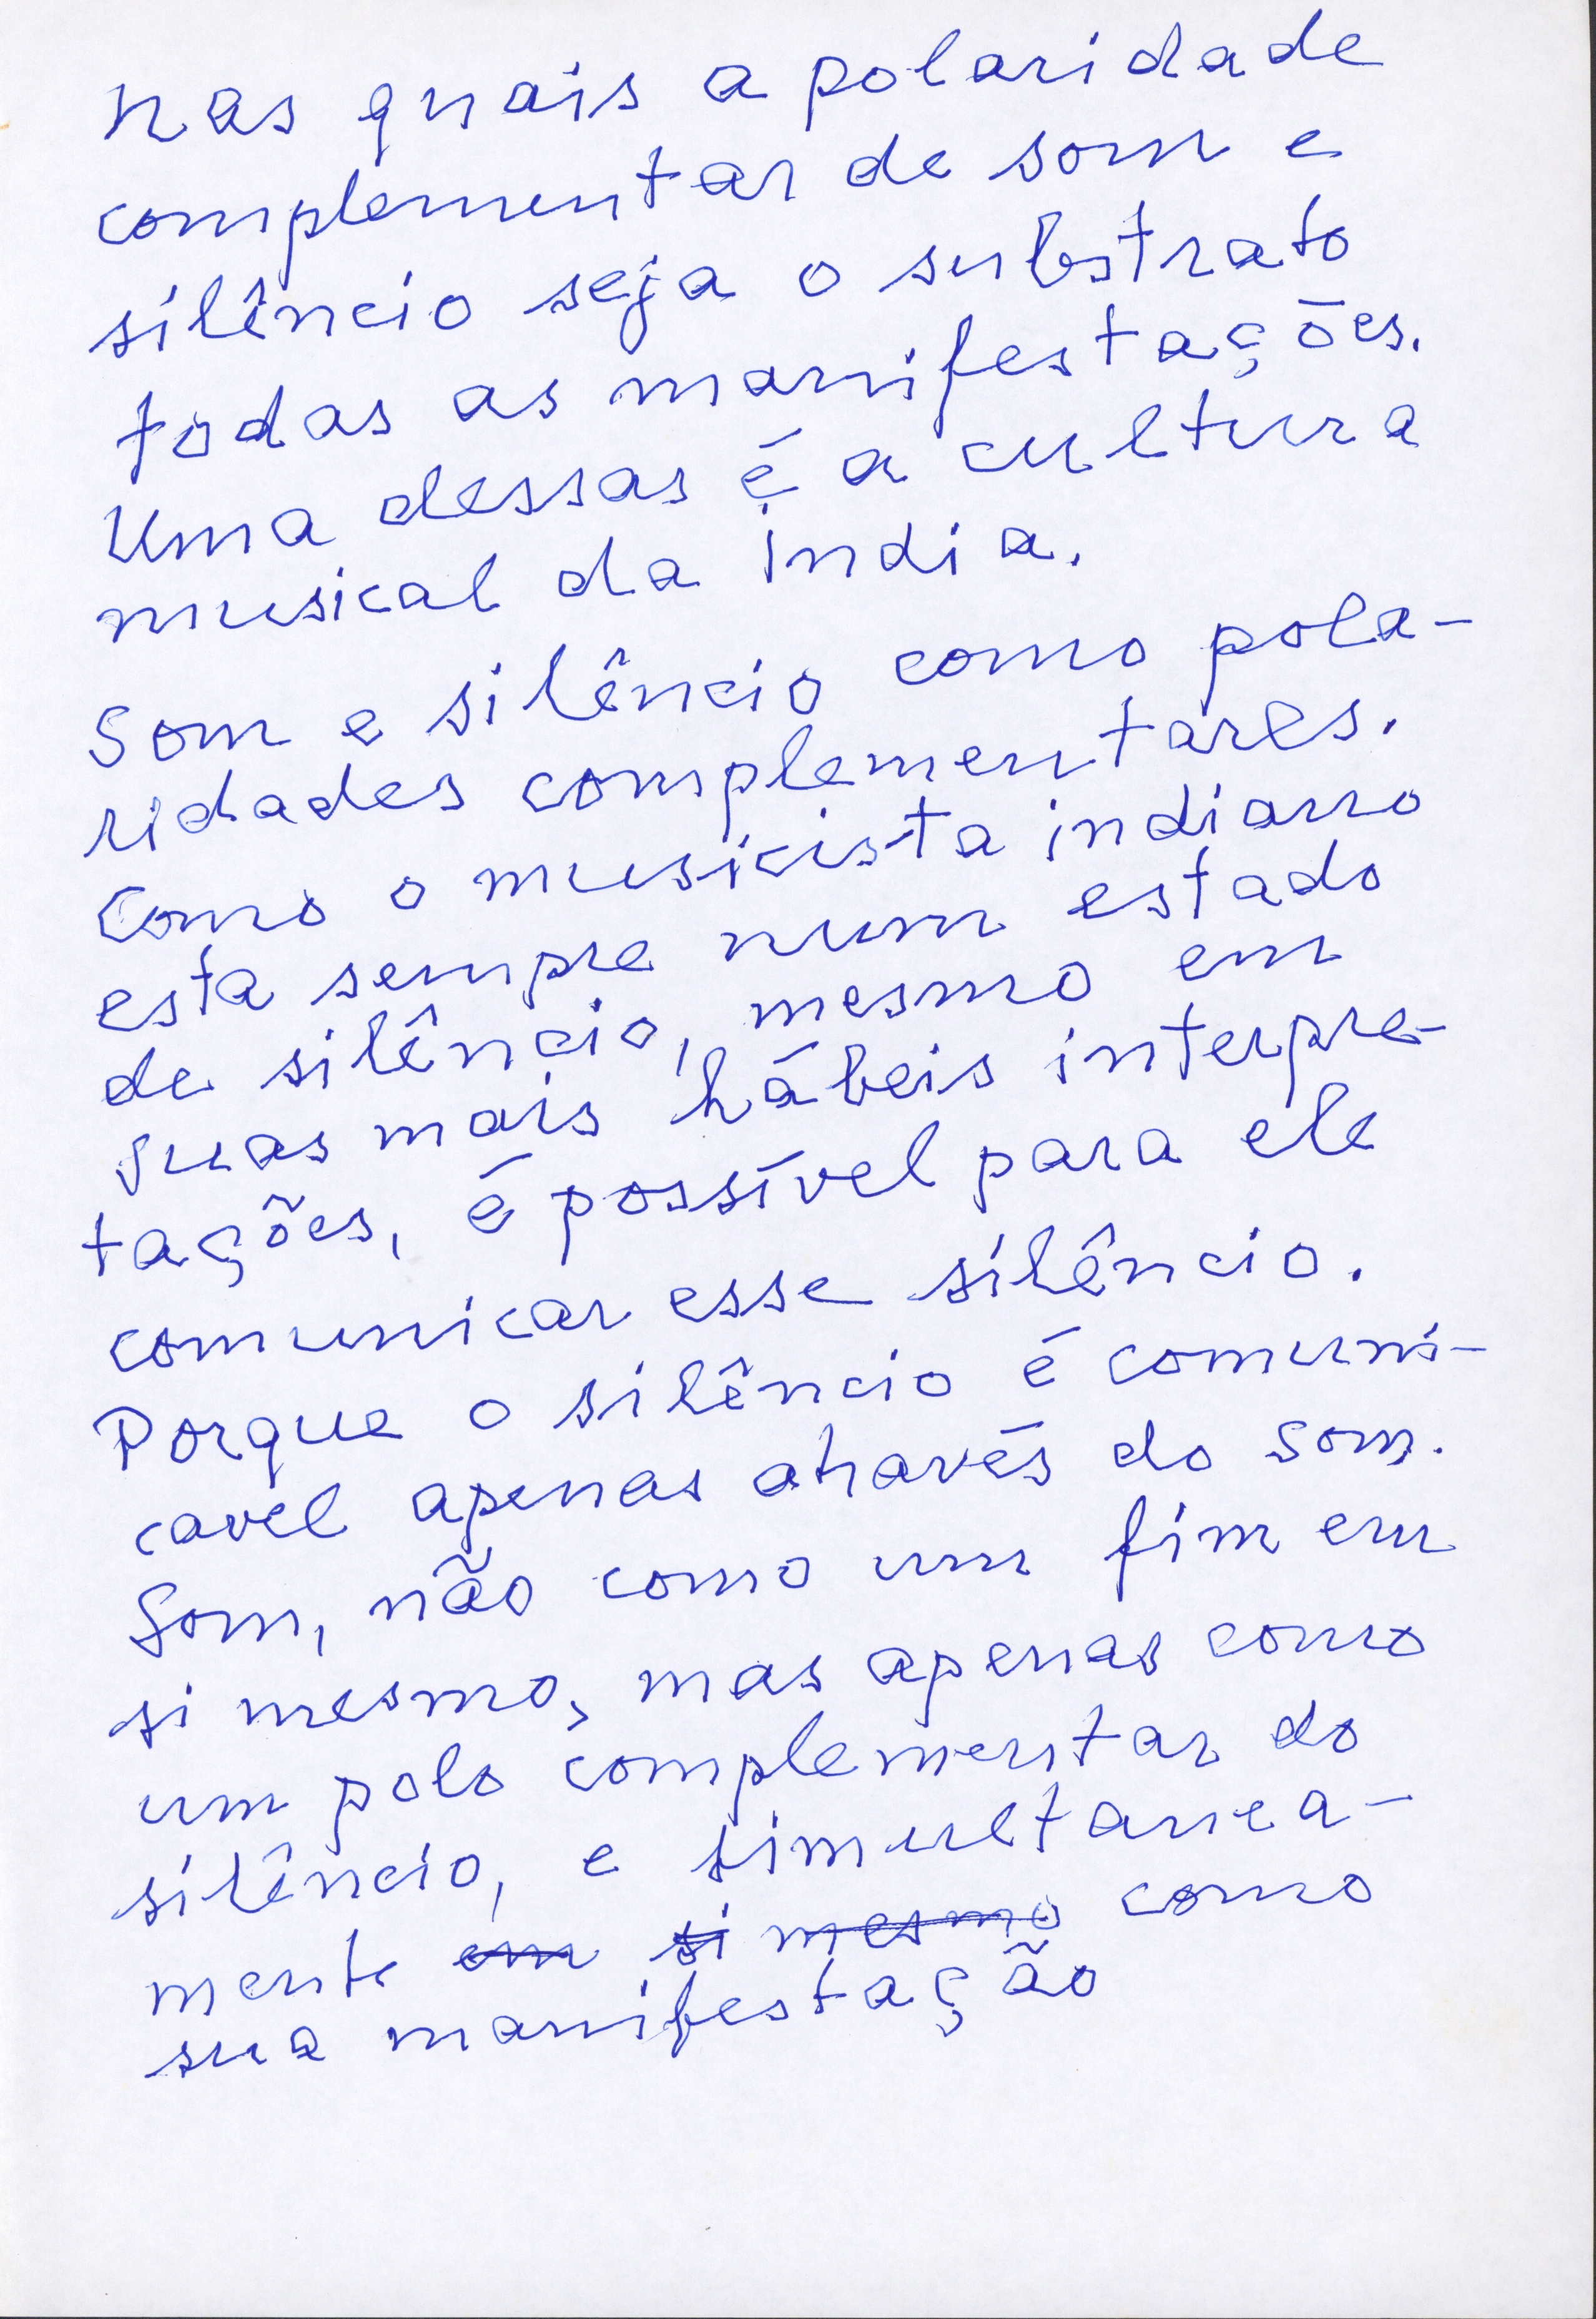 nas quais a polaridade
complementar de som e
silêncio seja o substrato
todas as manifestações.
Uma dessas é a cultura
musical da India.
Som e silêncio como pola-
ridades complementares.
Como o musicista indiano
esta sempre num estado
de silêncio, mesmo em
suas mais hábeis interpre-
tações, é possível para ele
comunicar esse silêncio.
Porque o silêncio é comuni-
cavel apenas através do som.
Som, não como um fim em
si mesmo, mas apenas como
um polo complementar do
silêncio, e simultanea-
mente em si mesmo como
sua manifestação